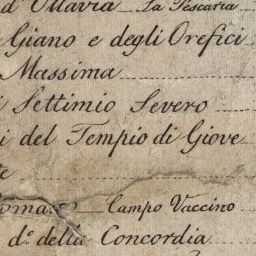 d'Ottavia La Pescaria
Giano e degli Orefici
Massima
Settimio Severo
i del Tempio di Giove
te
Roma Campo Vaccino
d.º della Concordia